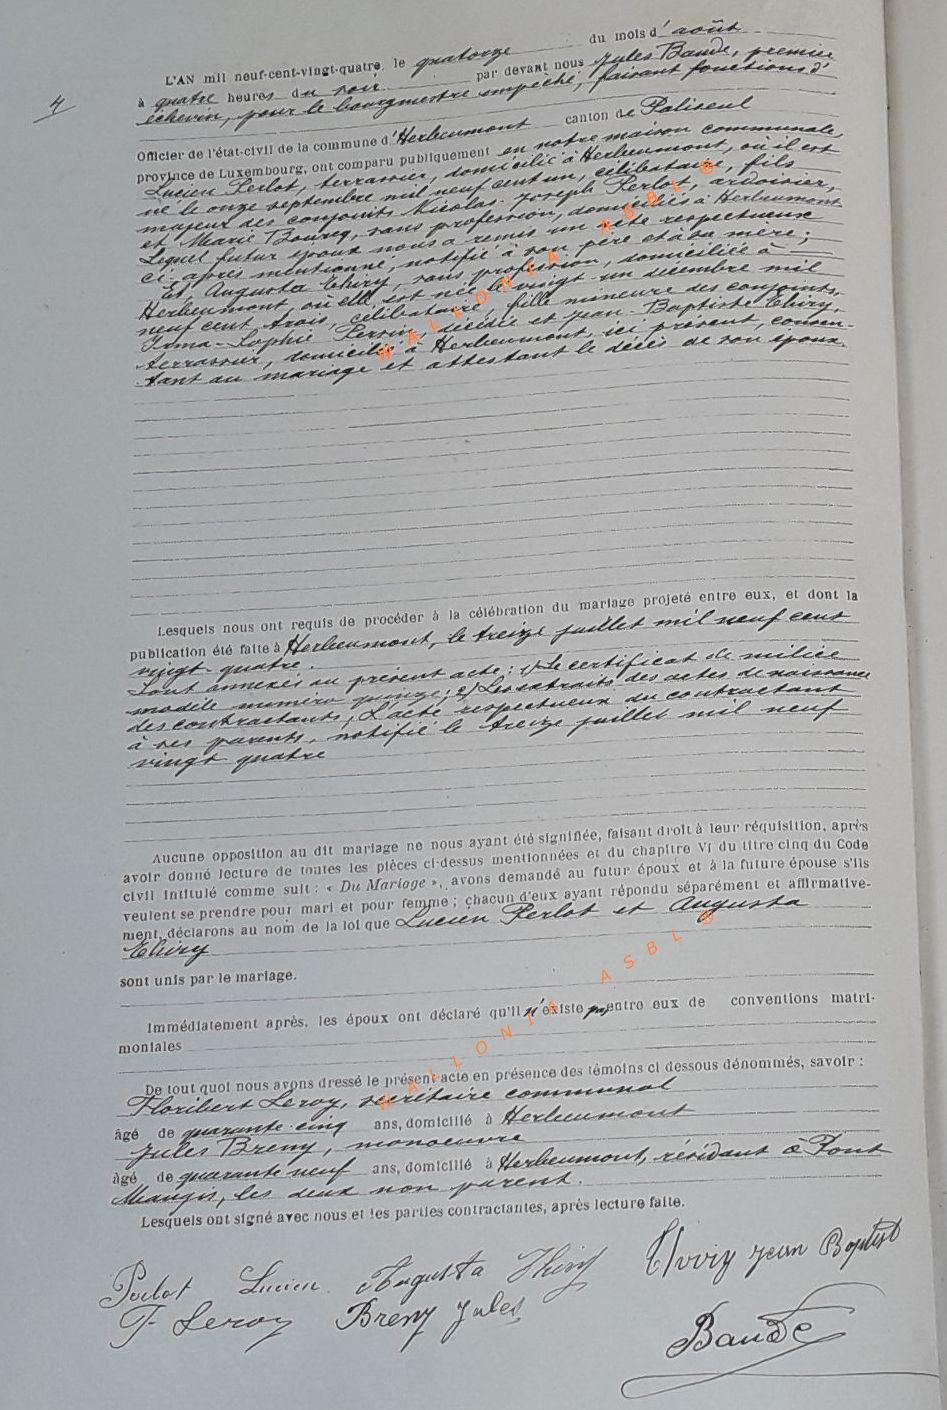 4
L'AN mil neuf-cent-vingt-quatre, le quatorze du mois d'août
à quatre heures du soir par devant nous Jules Baude, premier
échevin, pour le bourgmestre empêché, faisant fonctions d'
Officier de l'état-civil de la commune d'Herbeumont canton de Paliseul
province de Luxembourg, ont comparu publiquement en notre maison communale,
Lucien Perlot, terrassier, domicilié à Herbeumont, où il est
né le onze septembre mil neuf cent un, célibataire, fils
majeur des conjoints Nicolas-Joseph Perlot, ardoisier,
et Marie Bourcq, sans profession, domiciliés à Herbeumont
Lequel futur époux nous a remis un acte respectueux
ci-après mentionné, notifié à son père et à sa mère;
Et, Augusta Thiry, sans profession, domiciliée à
Herbeumont où elle est née le vingt un décembre mil
neuf cent trois, célibataire, fille mineure des conjoints,
Irma-Sophie Perrin, décédée et Jean-Baptiste Thiry,
terrassier, domicilié à Herbeumont, ici présent, consen-
tant au mariage et attestant le décès de son épouse.
Lesquels nous ont requis de procéder à la célébration du mariage projeté entre eux, et dont la
publication été faite à Herbeumont, le treize juillet mil neuf cent
vingt-quatre.
Sont annexés au présent acte: 1) Le certificat de milice
modèle numéro quinze; 2) Les extraits des actes de naissance
des contractants; L'acte respectueux du contractant
à ses parents, notifié le treize juillet mil neuf
vingt quatre
Aucune opposition au dit mariage ne nous ayant été signifiée, faisant droit à leur réquisition, après
avoir donné lecture de toutes les pièces ci-dessus mentionnées et du chapitre VI du titre cinq du Code
civil intitulé comme suit : « Du Mariage », avons demandé au futur époux et à la future épouse s'ils
veulent se prendre pour mari et pour femme ; chacun d'eux ayant répondu séparément et affirmative-
ment, déclarons au nom de la loi que Lucien Perlot et Augusta
Thiry
sont unis par le mariage.
Immédiatement après, les époux ont déclaré qu'il n'existe pas entre eux de conventions matri-
moniales
De tout quoi nous avons dressé le présent acte en présence des témoins ci dessous dénommés, savoir :
Floribert Leroy, secrétaire communal
âgé de quarante-cinq ans, domicilié à Herbeumont
Jules Breny, manoeuvre
âgé de quarante neuf ans, domicilié à Herbeumont, résidant à Pont
Maugis, les deux non parent.
Lesquels ont signé avec nous et les parties contractantes, après lecture faite.
Perlot Lucien Augusta Thiry Thiry Jean Baptist
F Leroy Breny Jules
Baude
WALLONIA ASBL ©
WALLONIA ASBL ©